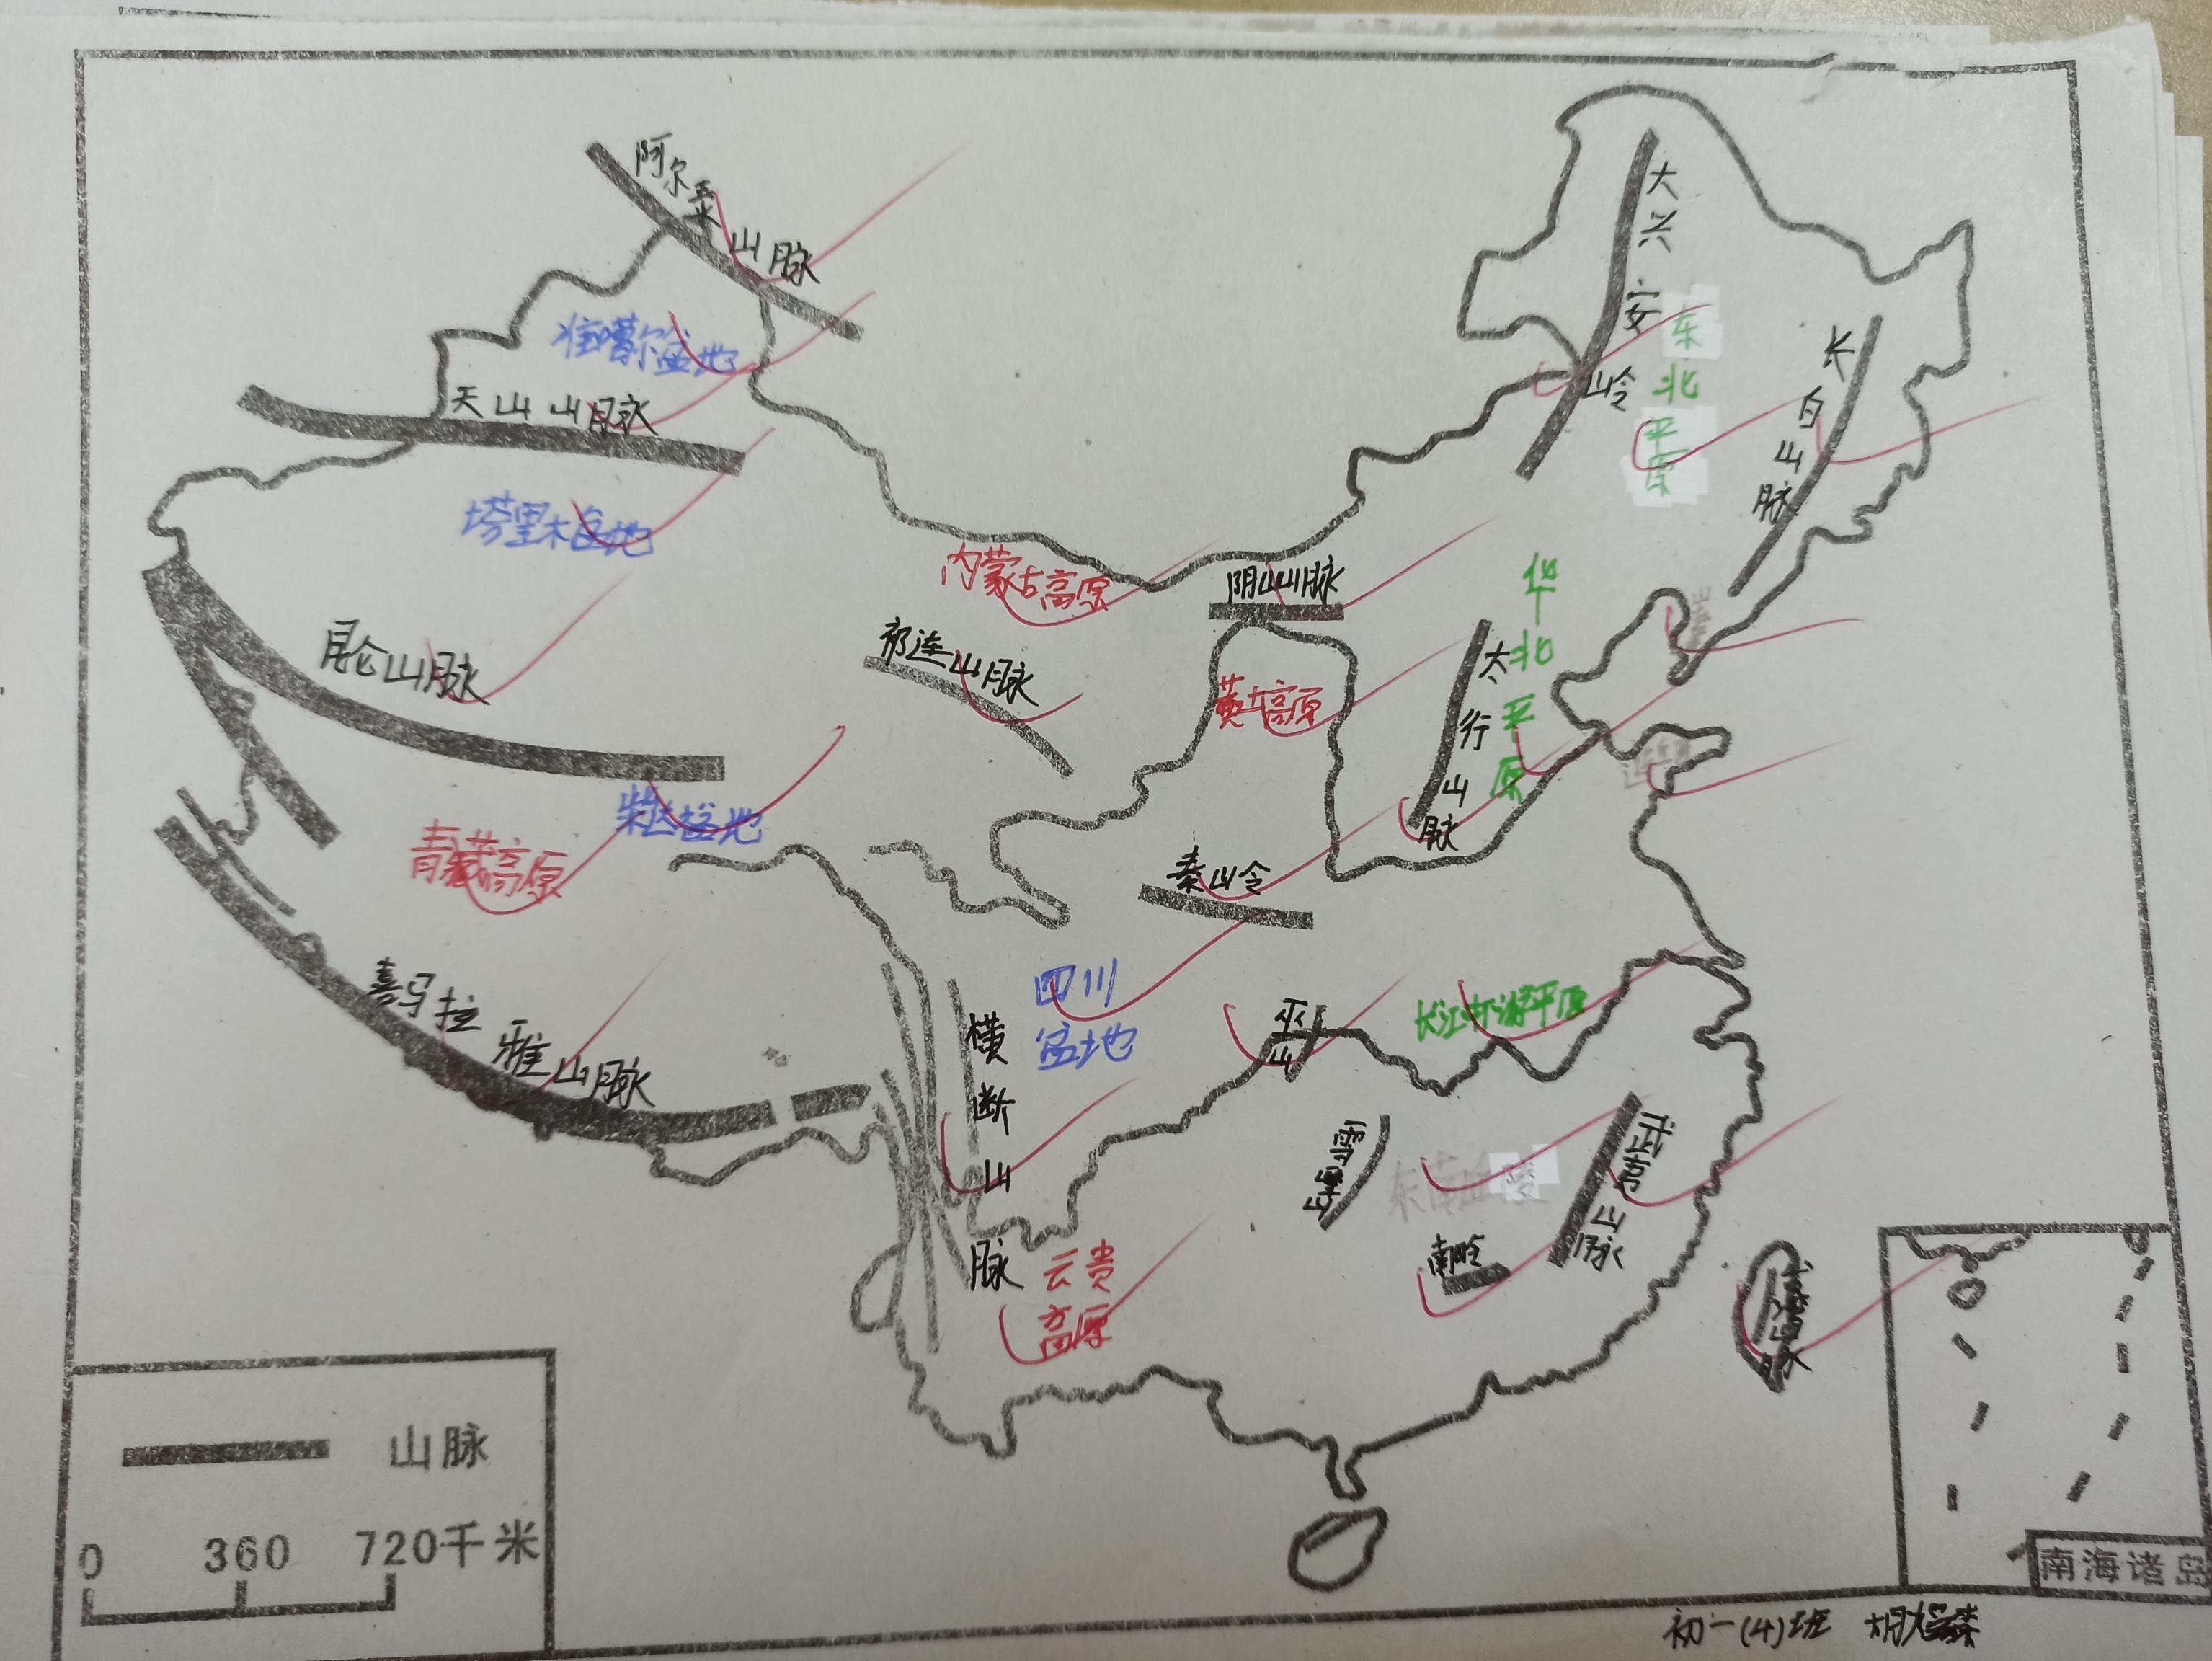 阿尔泰山脉
大兴安岭
准噶尔盆地
东北平原
长白山脉
天山山脉
塔里木盆地
内蒙古高原
阴山山脉
华北平原
昆仑山脉
祁连山脉
黄土高原
太行山脉
柴达木盆地
青藏高原
秦岭
四川
盆地
喜马拉雅山脉
横断山脉
巫山
长江中下游平原
雪峰山
东南丘陵
武夷山脉
南岭
云贵
高原
山脉
0 360 720千米
南海诸岛
初一(4)班